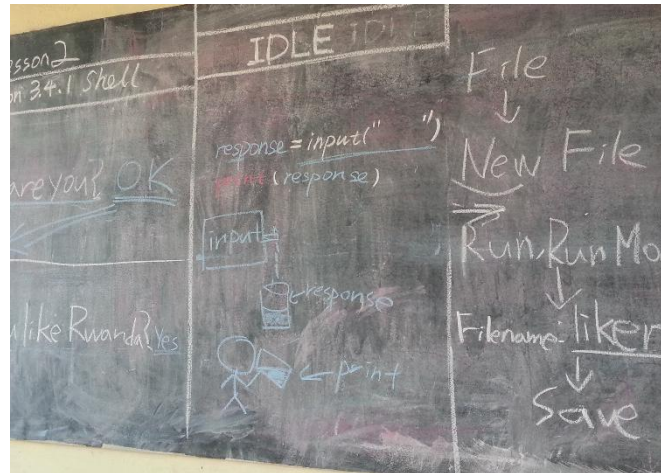 Lesson 2
3.4.1 Shell
are you? OK
like Rwanda? Yes
IDLE IDLE
response = input("      ")
print (response)
input
response
print
File
New File
Run, Run Mo
Filename: liker
Save